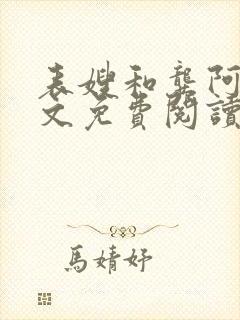 表嫂和龔阿
文免費閱讀
馬婧妤